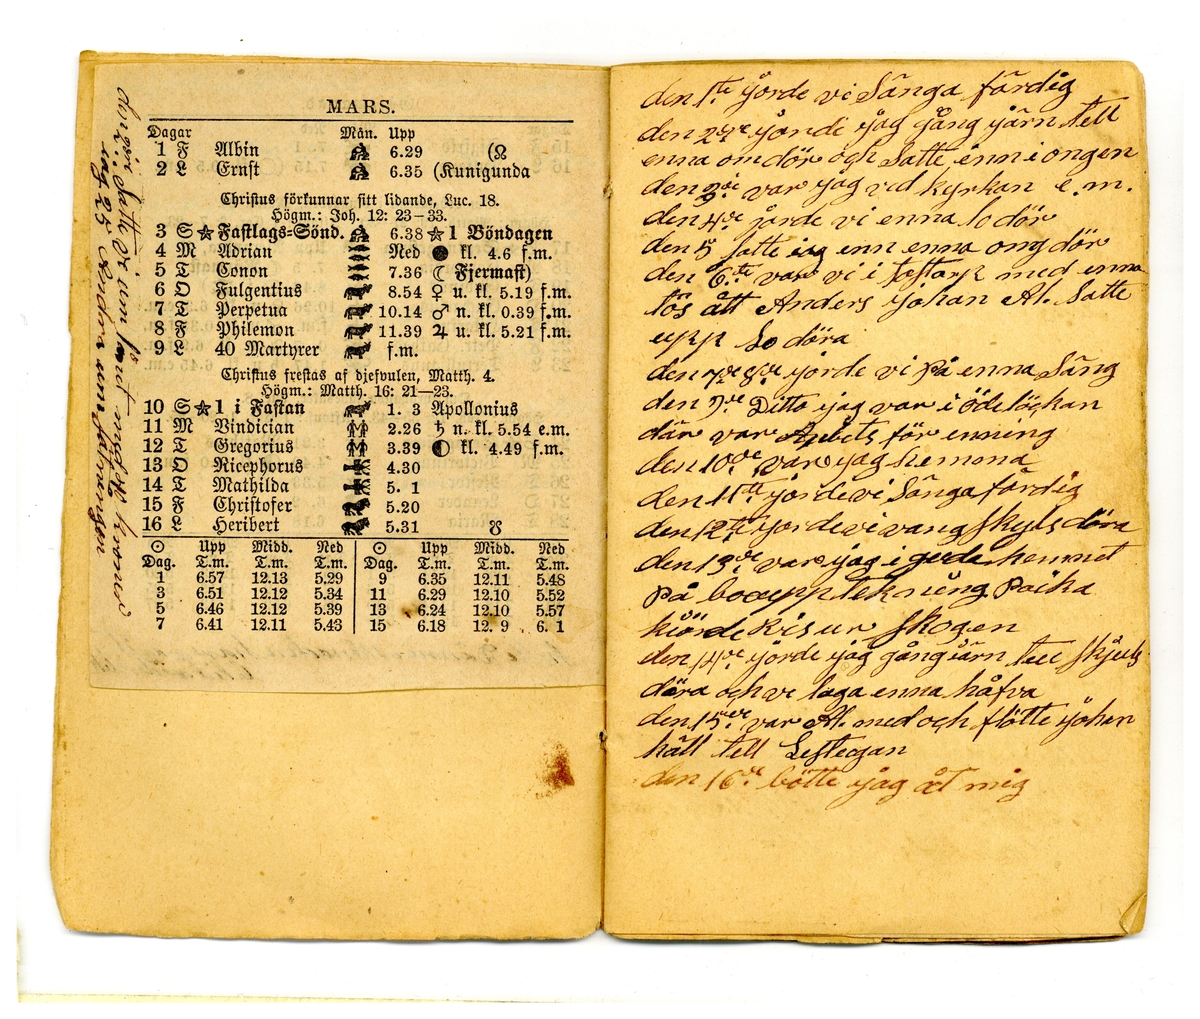 MARS.
Dagar Mån. Upp
1 F Albin 6.29 (☊
2 L Ernst 6.35 (Kunigunda
Christus förkunnar sitt lidande, Luc. 18.
Högm.: Joh. 12: 23–33.
3 S ☆ Fastlags=Sönd. 6.38 ☆ 1 Böndagen
4 M Adrian Ned ● kl. 4.6 f.m.
5 T Conon 7.36 ☾ Fjermast)
6 O Fulgentius 8.54 ♀ u. kl. 5.19 f.m.
7 T Perpetua 10.14 ♂ n. kl. 0.39 f.m.
8 F Philemon 11.39 ♃ u. kl. 5.21 f.m.
9 L 40 Martyrer f.m.
Christus frestas af djefvulen, Matth. 4.
Högm.: Matth. 16: 21–23.
10 S ☆ 1 i Fastan 1. 3 Apollonius
11 M Vindician 2.26 ♄ n. kl. 5.54 e.m.
12 T Gregorius 3.39 ◐ kl. 4.49 f.m.
13 O Nicephorus 4.30
14 T Mathilda 5. 1
15 F Christofer 5.20
16 L Heribert 5.31 ☋
☉ Upp Midd. Ned ☉ Upp Midd. Ned
Dag. T.m. T.m. T.m. Dag. T.m. T.m. T.m.
1 6.57 12.13 5.29 9 6.35 12.11 5.48
3 6.51 12.12 5.34 11 6.29 12.10 5.52
5 6.46 12.12 5.39 13 6.24 12.10 5.57
7 6.41 12.11 5.43 15 6.18 12. 9 6. 1
den 1te jorde vi Sänga färdig
den 2dre jorde jag gång järn tell
enna om dör och Satte inn i ongen
den 3de var jag vid Kyrkan e.m.
den 4de jorde vi enna lo dör
den 5 Satte jag enn enna ong dör
den 6te var vi i med enna
lös ått Anders Johan Al. Satte
upp Lo döra
den 7de 8de jorde vi på enna Säng
den 9de Ditto jag var i ödelöckan
där var Arbets för enning
den 10de var jag hemma
den 11te jorde vi Sänga färdig
den 12te jorde vi vang Skyls döra
den 13de var jag i gode hemmet
på boupptekning Poika
kiörde Ris ur Skogen
den 14de jorde jag gång järn tell Skjuls
döra och vi laga enna håfva
den 15de var Al. med och flötte Johan
håll tell
den 16de bötte jag åt mig